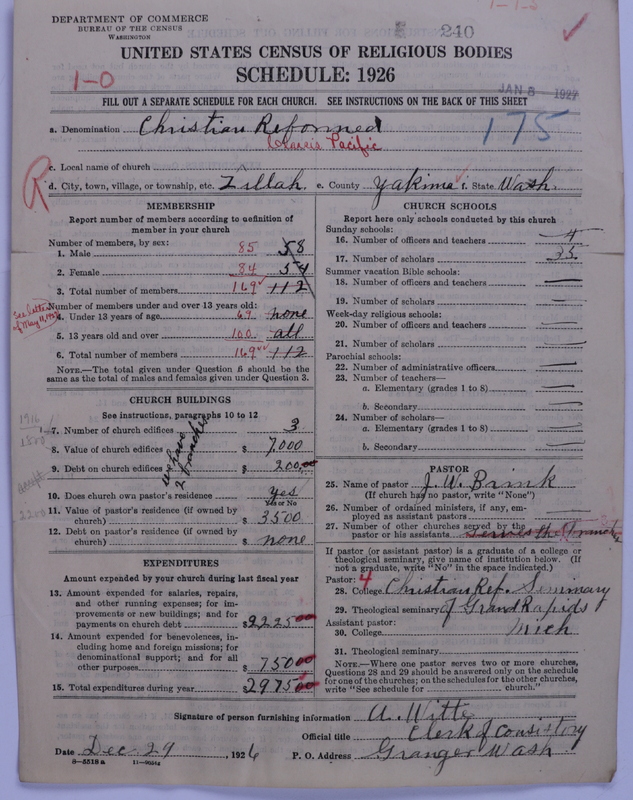 DEPARTMENT OF COMMERCE
BUREAU OF THE CENSUS
WASHINGTON
240
1-1-3
UNITED STATES CENSUS OF RELIGIOUS BODIES
SCHEDULE: 1926
1-0
JAN 8 1927
FILL OUT A SEPARATE SCHEDULE FOR EACH CHURCH. SEE INSTRUCTIONS ON THE BACK OF THIS SHEET
175
a. Denomination Christian Reformed
Classis Pacific
c. Local name of church
R
d. City, town, village, or township, etc. Zillah. e. County Yakima f. State Wash.
MEMBERSHIP
Report number of members according to definition of member in your church
Number of members, by sex:
1. Male 85 58
2. Female 84 54
3. Total number of members 169 112
See letter of May 11, 1928
Number of members under and over 13 years old:
4. Under 13 years of age 69 none
5. 13 years old and over 100 all
6. Total number of members 169 112
NOTE.—The total given under Question 6 should be the same as the total of males and females given under Question 3.
CHURCH BUILDINGS
See instructions, paragraphs 10 to 12
1916
7. Number of church edifices 3
8. Value of church edifices $ 7,000
9. Debt on church edifices $ 200.00
we have 2 branches
10. Does church own pastor's residence yes
Yes or No
11. Value of pastor's residence (if owned by church) $ 3500
12. Debt on pastor's residence (if owned by church) $ none
EXPENDITURES
Amount expended by your church during last fiscal year
13. Amount expended for salaries, repairs, and other running expenses; for improvements or new buildings; and for payments on church debt $2225.00
14. Amount expended for benevolences, including home and foreign missions; for denominational support; and for all other purposes $ 750.00
15. Total expenditures during year $2975.00
CHURCH SCHOOLS
Report here only schools conducted by this church
Sunday schools:
16. Number of officers and teachers 4
17. Number of scholars 35
Summer vacation Bible schools:
18. Number of officers and teachers —
19. Number of scholars —
Week-day religious schools:
20. Number of officers and teachers —
21. Number of scholars —
Parochial schools:
22. Number of administrative officers —
23. Number of teachers—
a. Elementary (grades 1 to 8) —
b. Secondary —
24. Number of scholars—
a. Elementary (grades 1 to 8) —
b. Secondary —
PASTOR
25. Name of pastor J. W. Brink
(If church has no pastor, write "None")
26. Number of ordained ministers, if any, employed as assistant pastors
27. Number of other churches served by the pastor or his assistants serves the branches
If pastor (or assistant pastor) is a graduate of a college or theological seminary, give name of institution below. (If not a graduate, write "No" in the space indicated.)
Pastor: 4
28. College Christian Ref. Seminary
29. Theological seminary of Grand Rapids
Assistant pastor:
30. College Mich
31. Theological seminary
NOTE.—Where one pastor serves two or more churches, Questions 28 and 29 should be answered only on the schedule for one of the churches; on the schedules for the other churches, write "See schedule for church."
Signature of person furnishing information A. Witte
Official title Clerk of Consistory
Date Dec. 29, 1926 P. O. Address Granger Wash
8-5518 a